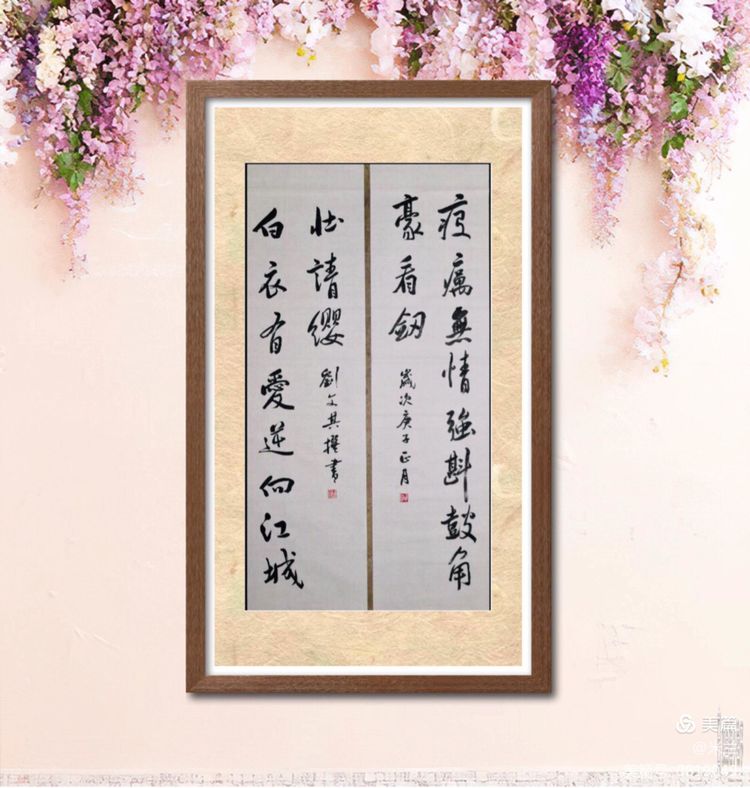 疫癘無情強斟鼓角
豪看釼
歲次庚子正月
白衣有愛逆向江城
壯請纓
劉文其撰書
美篇